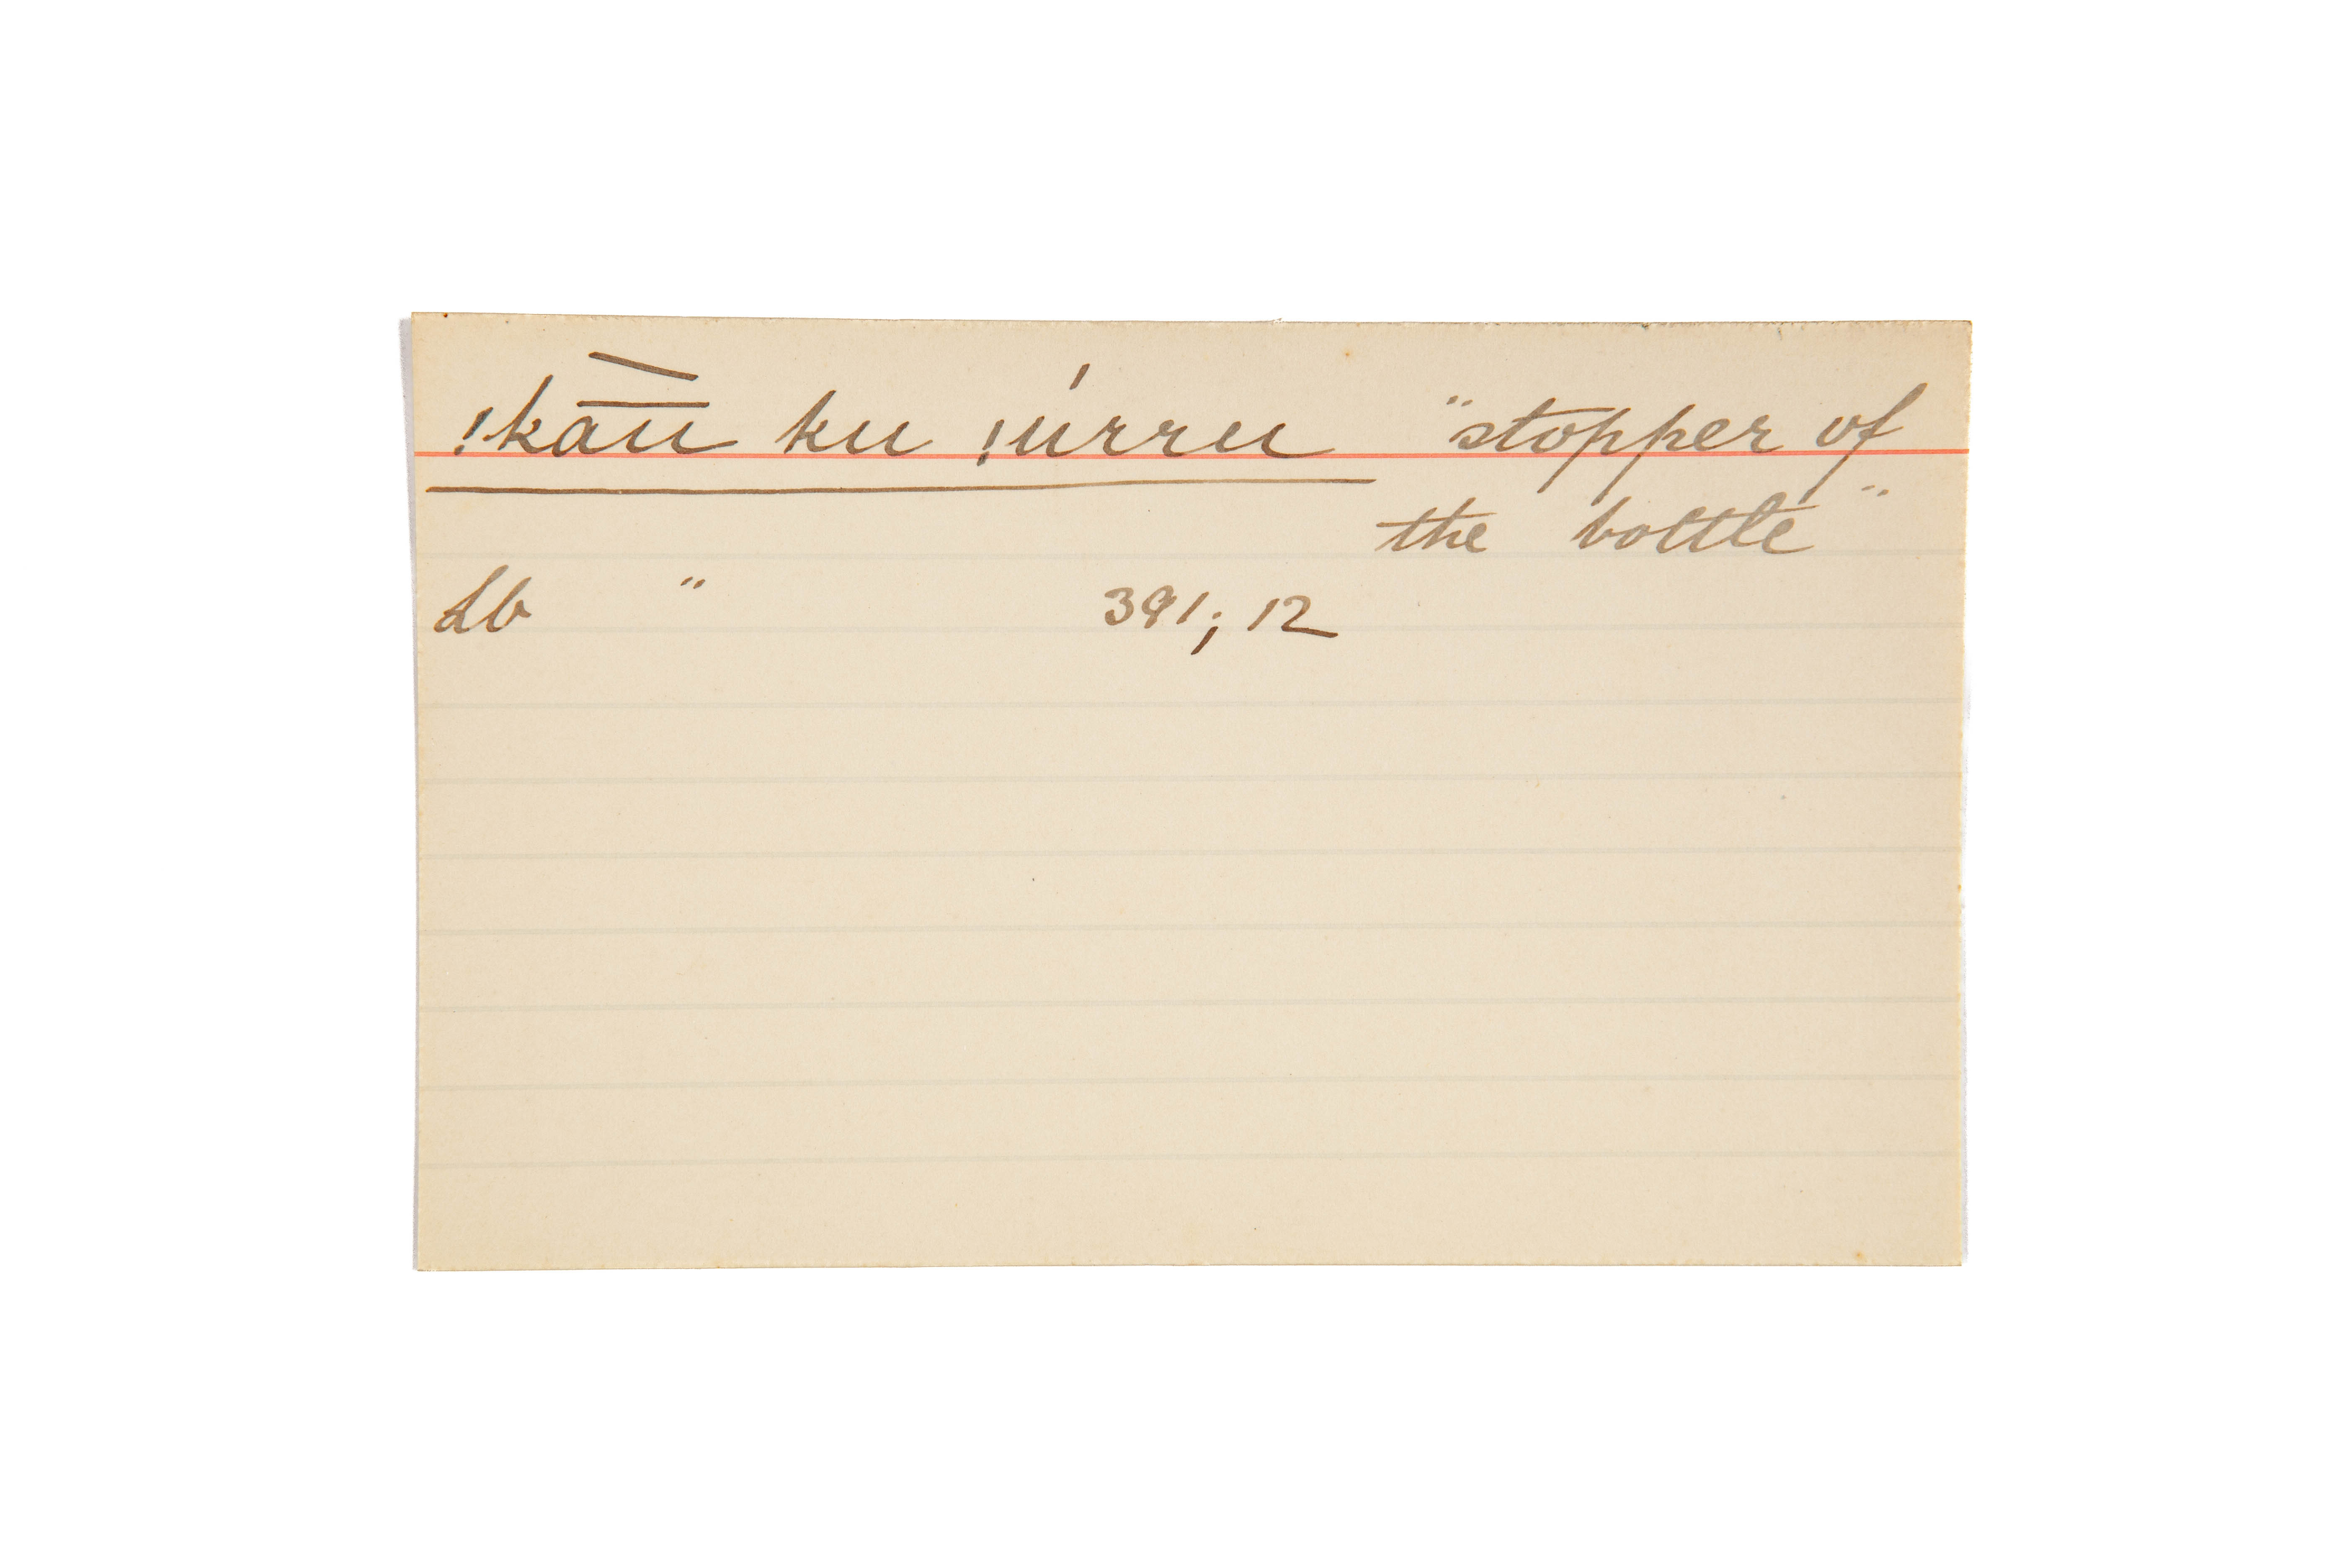 !kā̀ū ku !úrru "stopper of
the bottle"
Lb " 391; 12